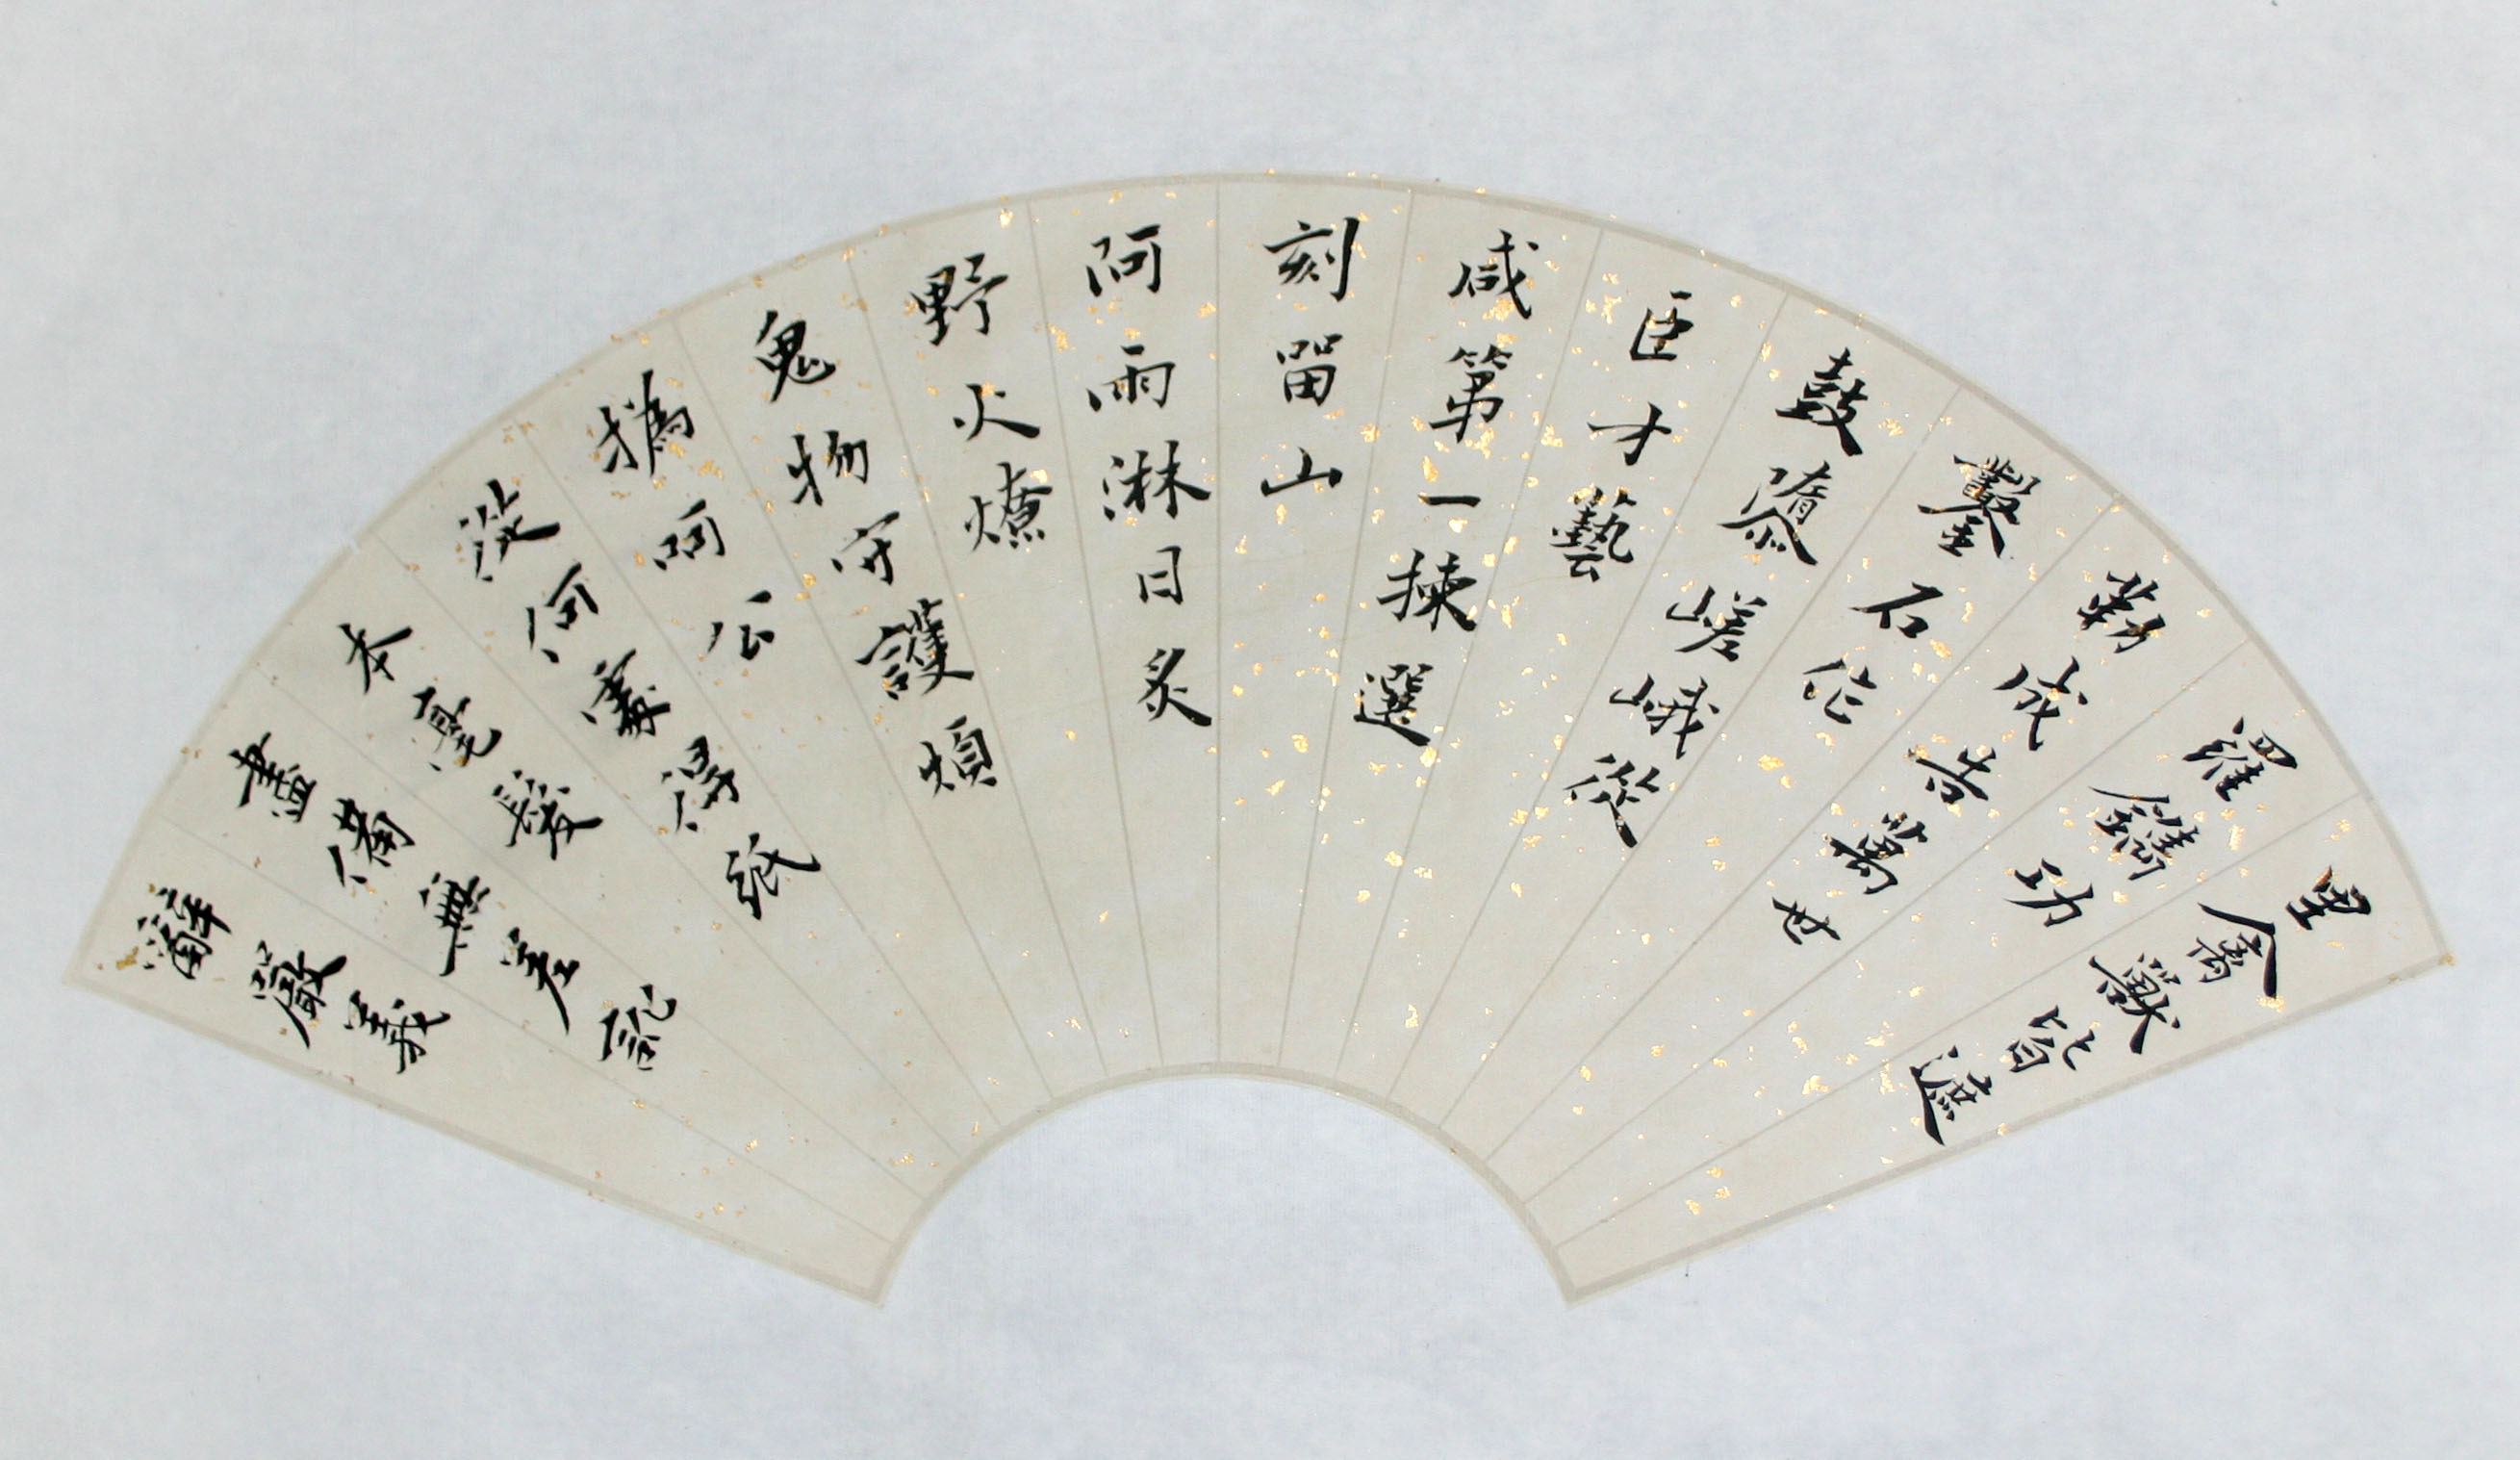 里禽獸皆遮
羅鐫功
勒成告萬世
鑿石作
鼓隳嵯峨從
臣才藝
咸第一揀選
刻留山
阿雨淋日炙
野火燎
鬼物守護煩
撝呵公
從何處得紙
本毫髮
盡備無差訛
辭嚴義